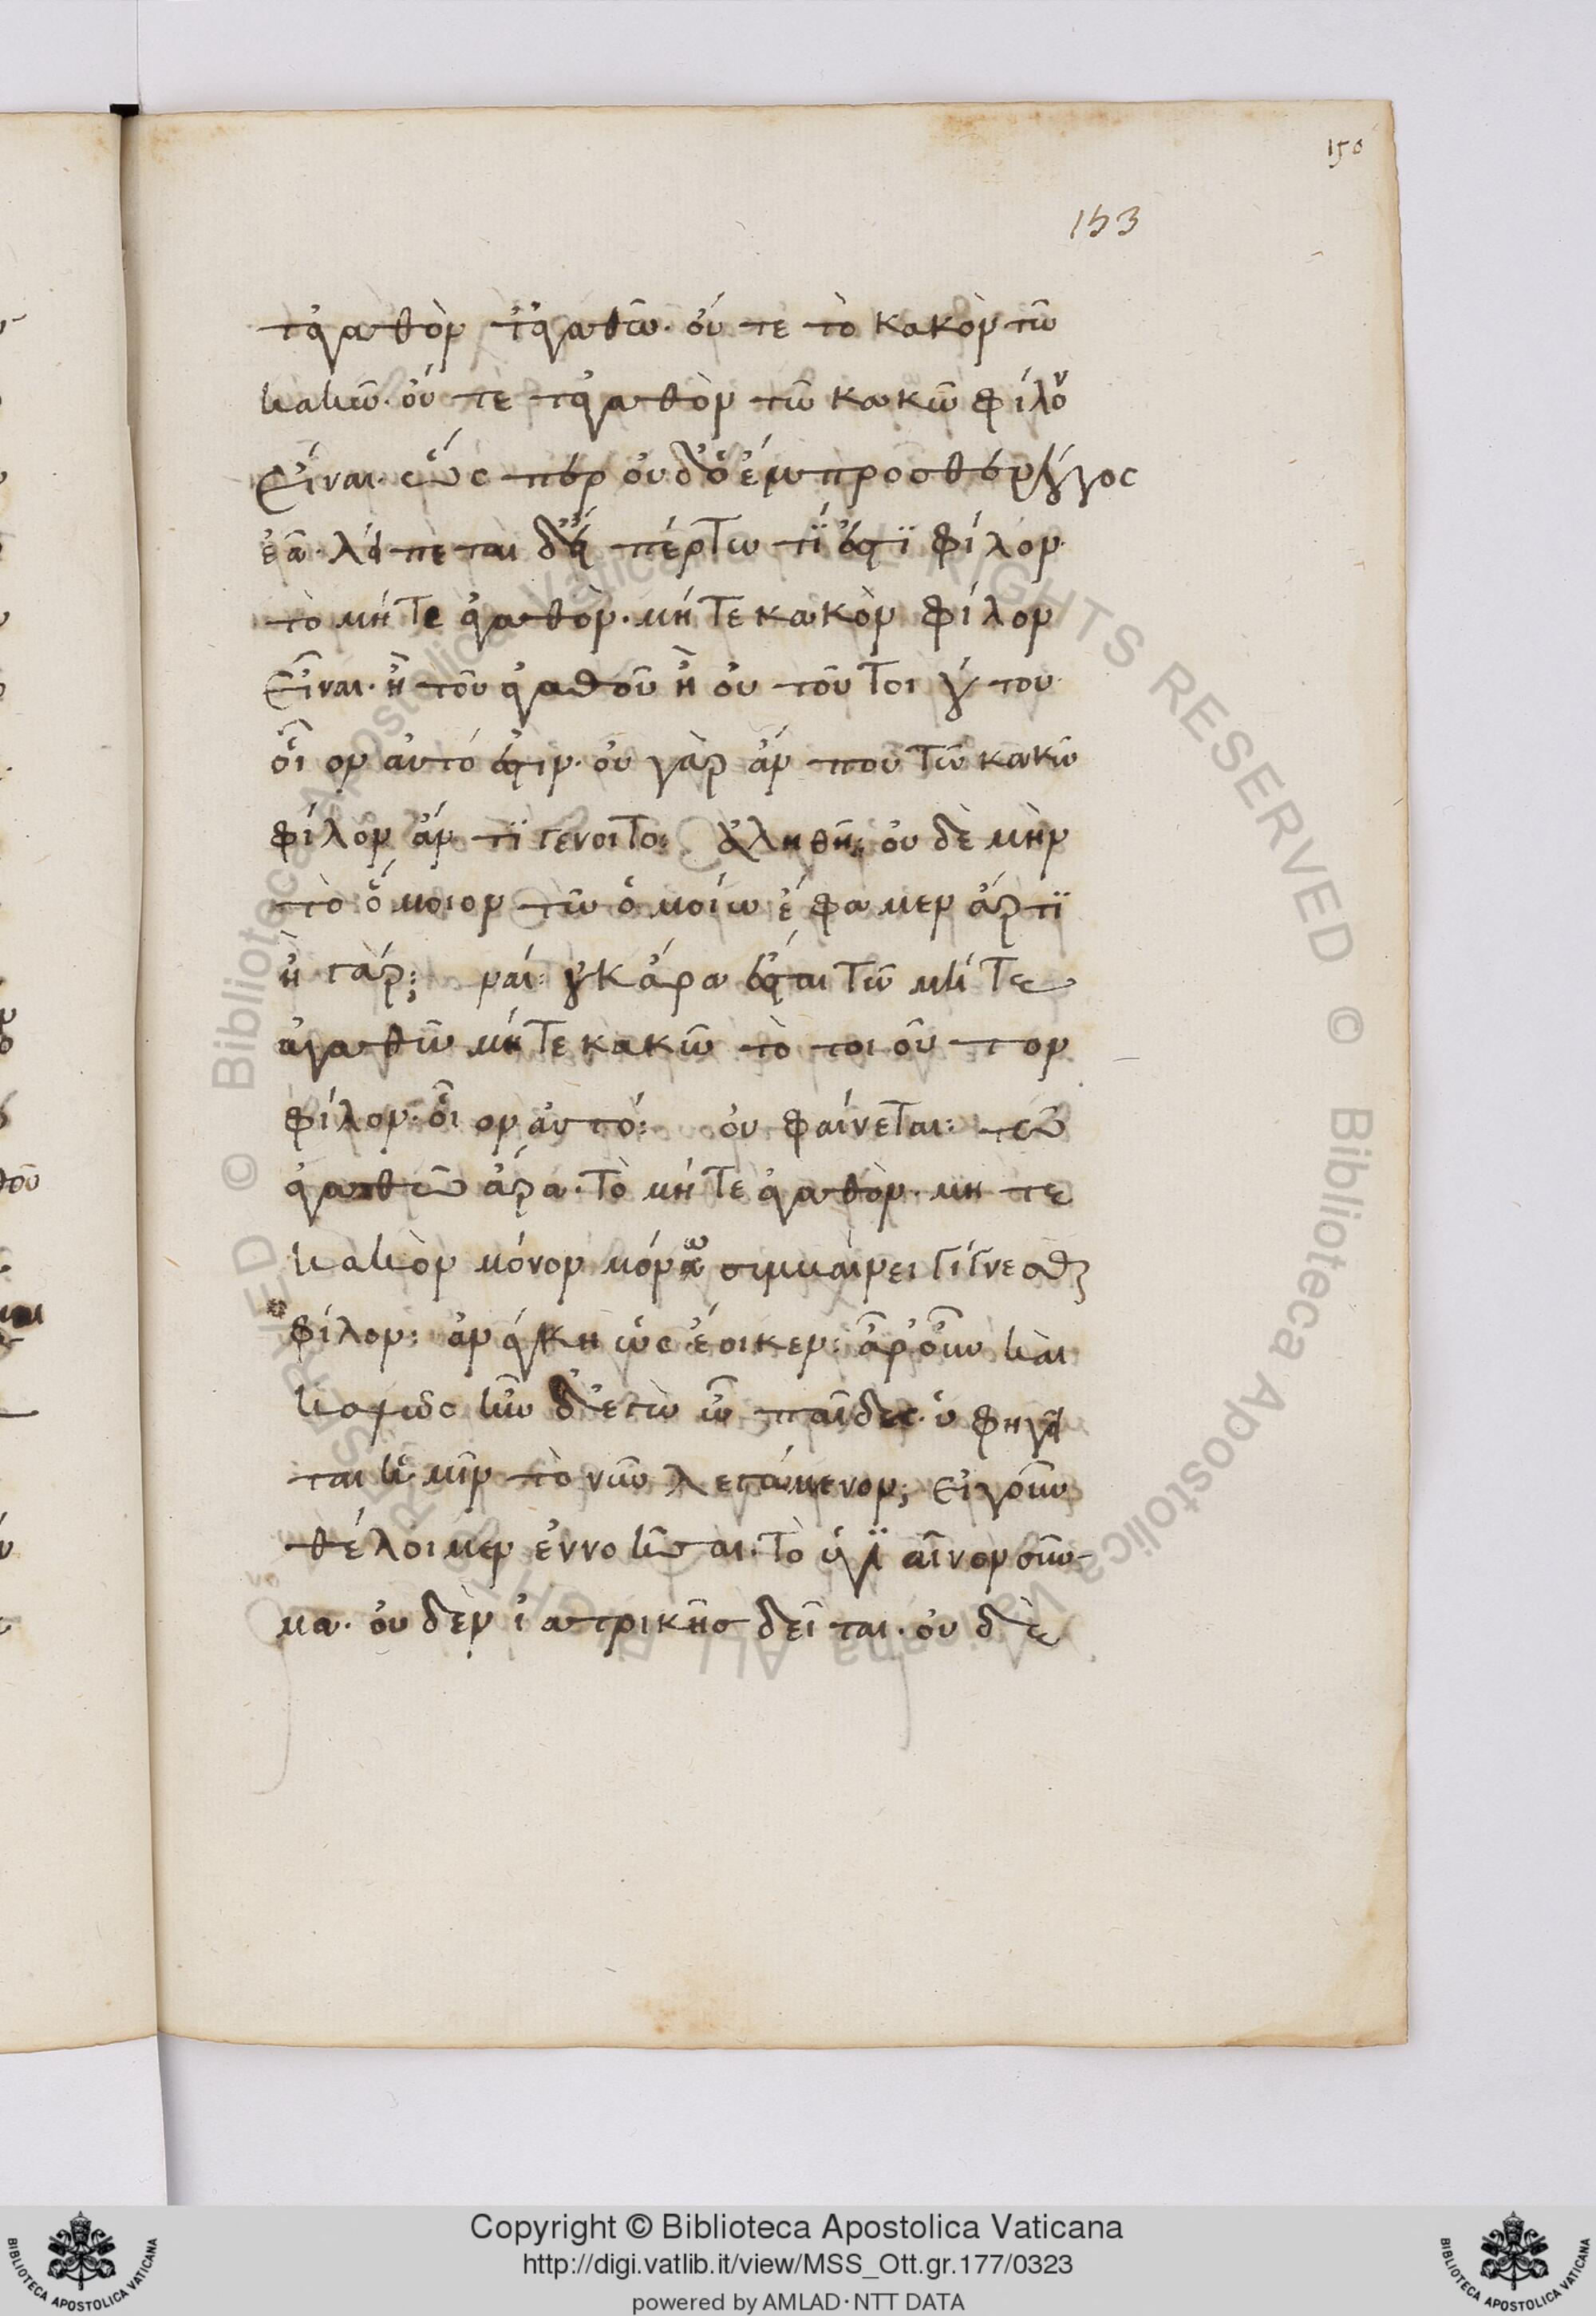 150
153
τἀγαθὸν τἀγαθῶ. οὔτε τὸ κακὸν τῶ
κακῶ. οὔτε τἀγαθὸν τῶ κακῶ φίλον
εἶναι. ὥσπερ οὐδ' ὁ ἔμπροσθεν λόγος
ἐᾶ. λείπεται δὴ εἴπερ τω τΐ ἐστΐ φίλον.
τὸ μήτε ἀγαθὸν. μήτε κακὸν φίλον
εἶναι. ἢ τοῦ ἀγαθοῦ ἢ οὐ τοῦ τοιούτου
οἷον αὐτό ἐστιν. οὐ γὰρ ἄν που τῶ κακῶ
φίλον ἄν τΐ γένοιτο: ἀληθῆ: οὐδὲ μὴν
τὸ ὅμοιον τῶ ὁμοίω ἔφαμεν ἄρτΐ
ἢ γάρ; ναί: οὐκ ἄρα ἔσται τῶ μήτε
ἀγαθῶ μήτε κακῶ τὸ τοιοῦτον
φίλον. οἷον αὐτό: οὐ φαίνεται: τῶ
ἀγαθῶ ἄρα. τὸ μήτε ἀγαθὸν. μήτε
κακὸν μόνον μόνω συμβαίνει γίγνεσθαι
φίλον: ἀνάγκη ὡς ἔοικεν: ἆρ' οὖν καὶ
καλῶς ἦν δ' ἐγὼ ὦ παῖδες. ὑφηγεῖ
ται ἡμῖν τὸ νῦν λεγόμενον; εἰ γοῦν
θέλοιμεν ἐννοῆσαι. τὸ ὑγιαῖνον σῶ-
μα. οὐδὲν ἰατρικῆς δεῖται. οὐδὲ
Copyright © Biblioteca Apostolica Vaticana
http://digi.vatlib.it/view/MSS_Ott.gr.177/0323
powered by AMLAD·NTT DATA